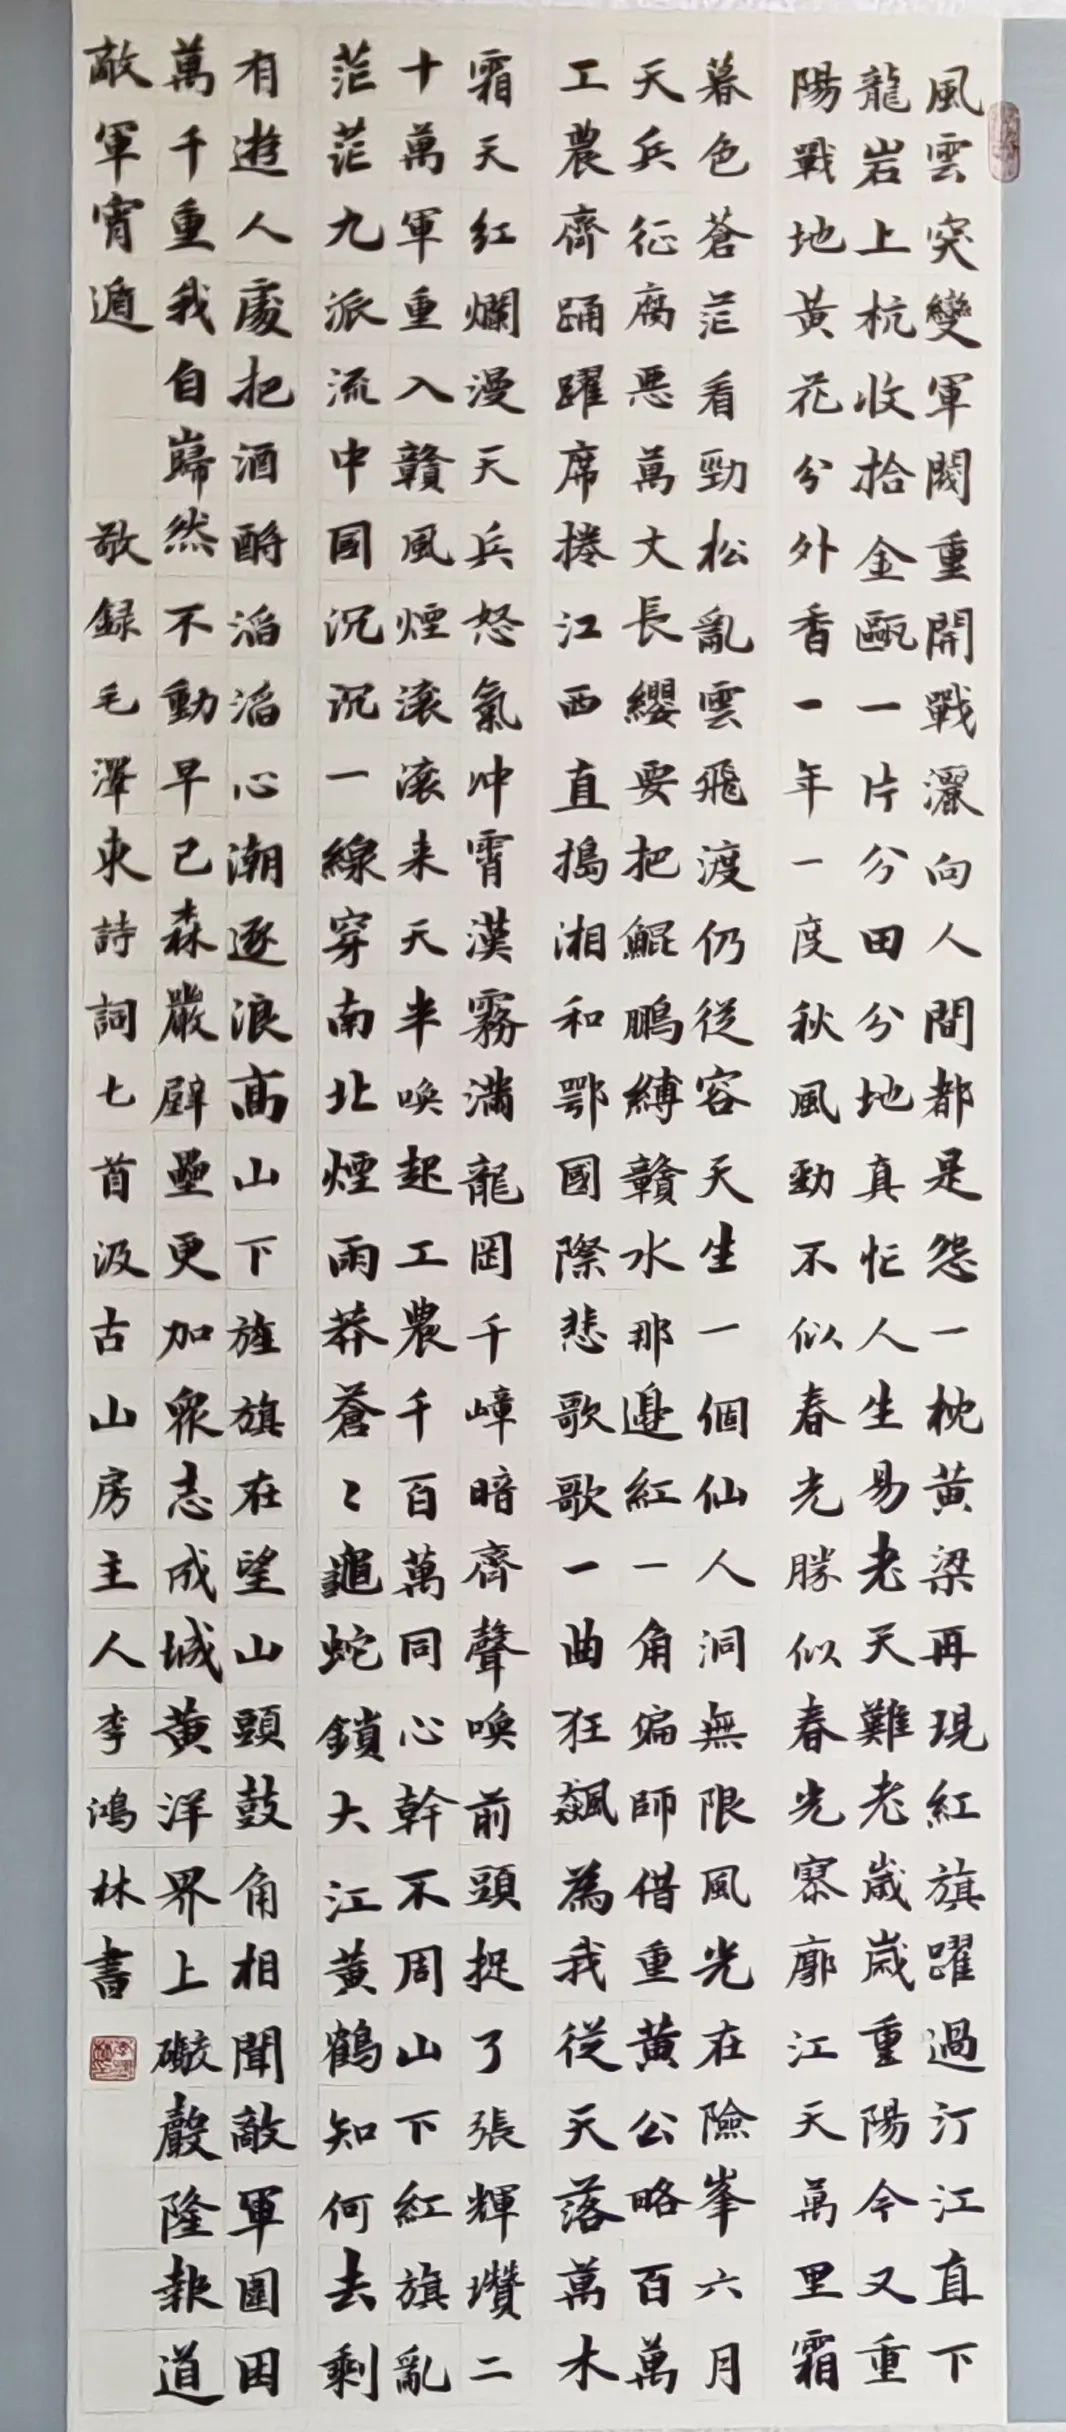 風雲突變軍閥重開戰灑向人間都是怨一枕黃梁再現紅旗躍過汀江直下
龍岩上杭收拾金甌一片分田分地真忙人生易老天難老歲歲重陽今又重
陽戰地黃花分外香一年一度秋風勁不似春光勝似春光寥廓江天萬里霜
暮色蒼茫看勁松亂雲飛渡仍從容天生一個仙人洞無限風光在險峯六月
天兵征腐惡萬丈長纓要把鯤鵬縛贛水那邊紅一角偏師借重黃公略百萬
工農齊踊躍席捲江西直搗湘和鄂國際悲歌歌一曲狂飆為我從天落萬木
霜天紅爛漫天兵怒氣沖霄漢霧滿龍岡千嶂暗齊聲喚前頭捉了張輝瓚二
十萬軍重入贛風煙滾滾來天半喚起工農千百萬同心幹不周山下紅旗亂
茫茫九派流中國沉沉一線穿南北煙雨莽蒼々龜蛇鎖大江黃鶴知何去剩
有遊人處把酒酹滔滔心潮逐浪高山下旌旗在望山頭鼓角相聞敵軍圍困
萬千重我自巋然不動早已森嚴壁壘更加眾志成城黃洋界上礮聲隆報道
敵軍宵遁 敬録毛澤東詩詞七首汲古山房主人李鴻林書